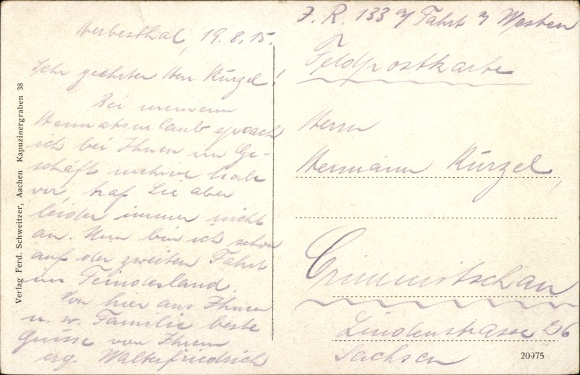 Herbesthal, 19.8.15.
Sehr geehrter Herr Kürzel!
Bei meinem
Heimatsurlaub sprach
ich bei Ihnen im Ge-
schäft mehrere Male
vor, traf Sie aber
leider immer nicht
an. Nun bin ich schon
auf der zweiten Fahrt
ins Feindesland.
Von hier aus Ihnen
u. w. Familie beste
Grüsse von Ihrem
erg. Walterfriedrich
Verlag Ferd. Schweitzer, Aachen Kapuzinergraben 38
J. R. 133 Fahrt Westen
Feldpostkarte
Herrn
Hermann Kürzel,
Crimmitschau
Lindenstrasse 26
Sachsen
20975